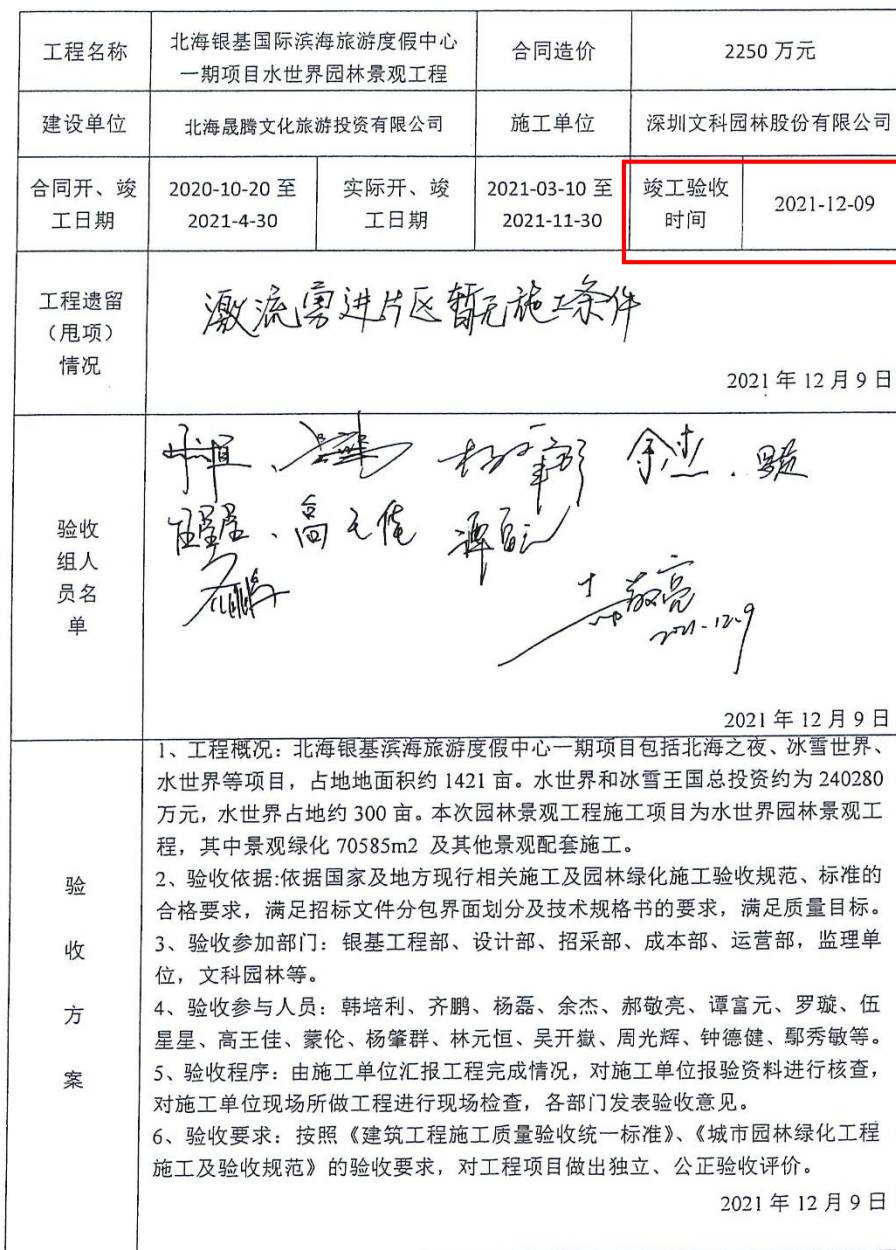 工程名称
北海银基国际滨海旅游度假中心
一期项目水世界园林景观工程
合同造价
2250 万元
建设单位
北海晟腾文化旅游投资有限公司
施工单位
深圳文科园林股份有限公司
合同开、竣
工日期
2020-10-20 至
2021-4-30
实际开、竣
工日期
2021-03-10 至
2021-11-30
竣工验收
时间
2021-12-09
工程遗留
（甩项）
情况
激流勇进片区暂无施工条件
2021 年 12 月 9 日
验收
组人
员名
单
余杰
高王佳
敬亮
2021-12-9
2021 年 12 月 9 日
验
收
方
案
1、工程概况：北海银基滨海旅游度假中心一期项目包括北海之夜、冰雪世界、
水世界等项目，占地地面积约 1421 亩。水世界和冰雪王国总投资约为 240280
万元，水世界占地约 300 亩。本次园林景观工程施工项目为水世界园林景观工
程，其中景观绿化 70585m2 及其他景观配套施工。
2、验收依据:依据国家及地方现行相关施工及园林绿化施工验收规范、标准的
合格要求，满足招标文件分包界面划分及技术规格书的要求，满足质量目标。
3、验收参加部门：银基工程部、设计部、招采部、成本部、运营部，监理单
位，文科园林等。
4、验收参与人员：韩培利、齐鹏、杨磊、余杰、郝敬亮、谭富元、罗璇、伍
星星、高王佳、蒙伦、杨肇群、林元恒、吴开嶽、周光辉、钟德健、鄢秀敏等。
5、验收程序：由施工单位汇报工程完成情况，对施工单位报验资料进行核查，
对施工单位现场所做工程进行现场检查，各部门发表验收意见。
6、验收要求：按照《建筑工程施工质量验收统一标准》、《城市园林绿化工程
施工及验收规范》的验收要求，对工程项目做出独立、公正验收评价。
2021 年 12 月 9 日